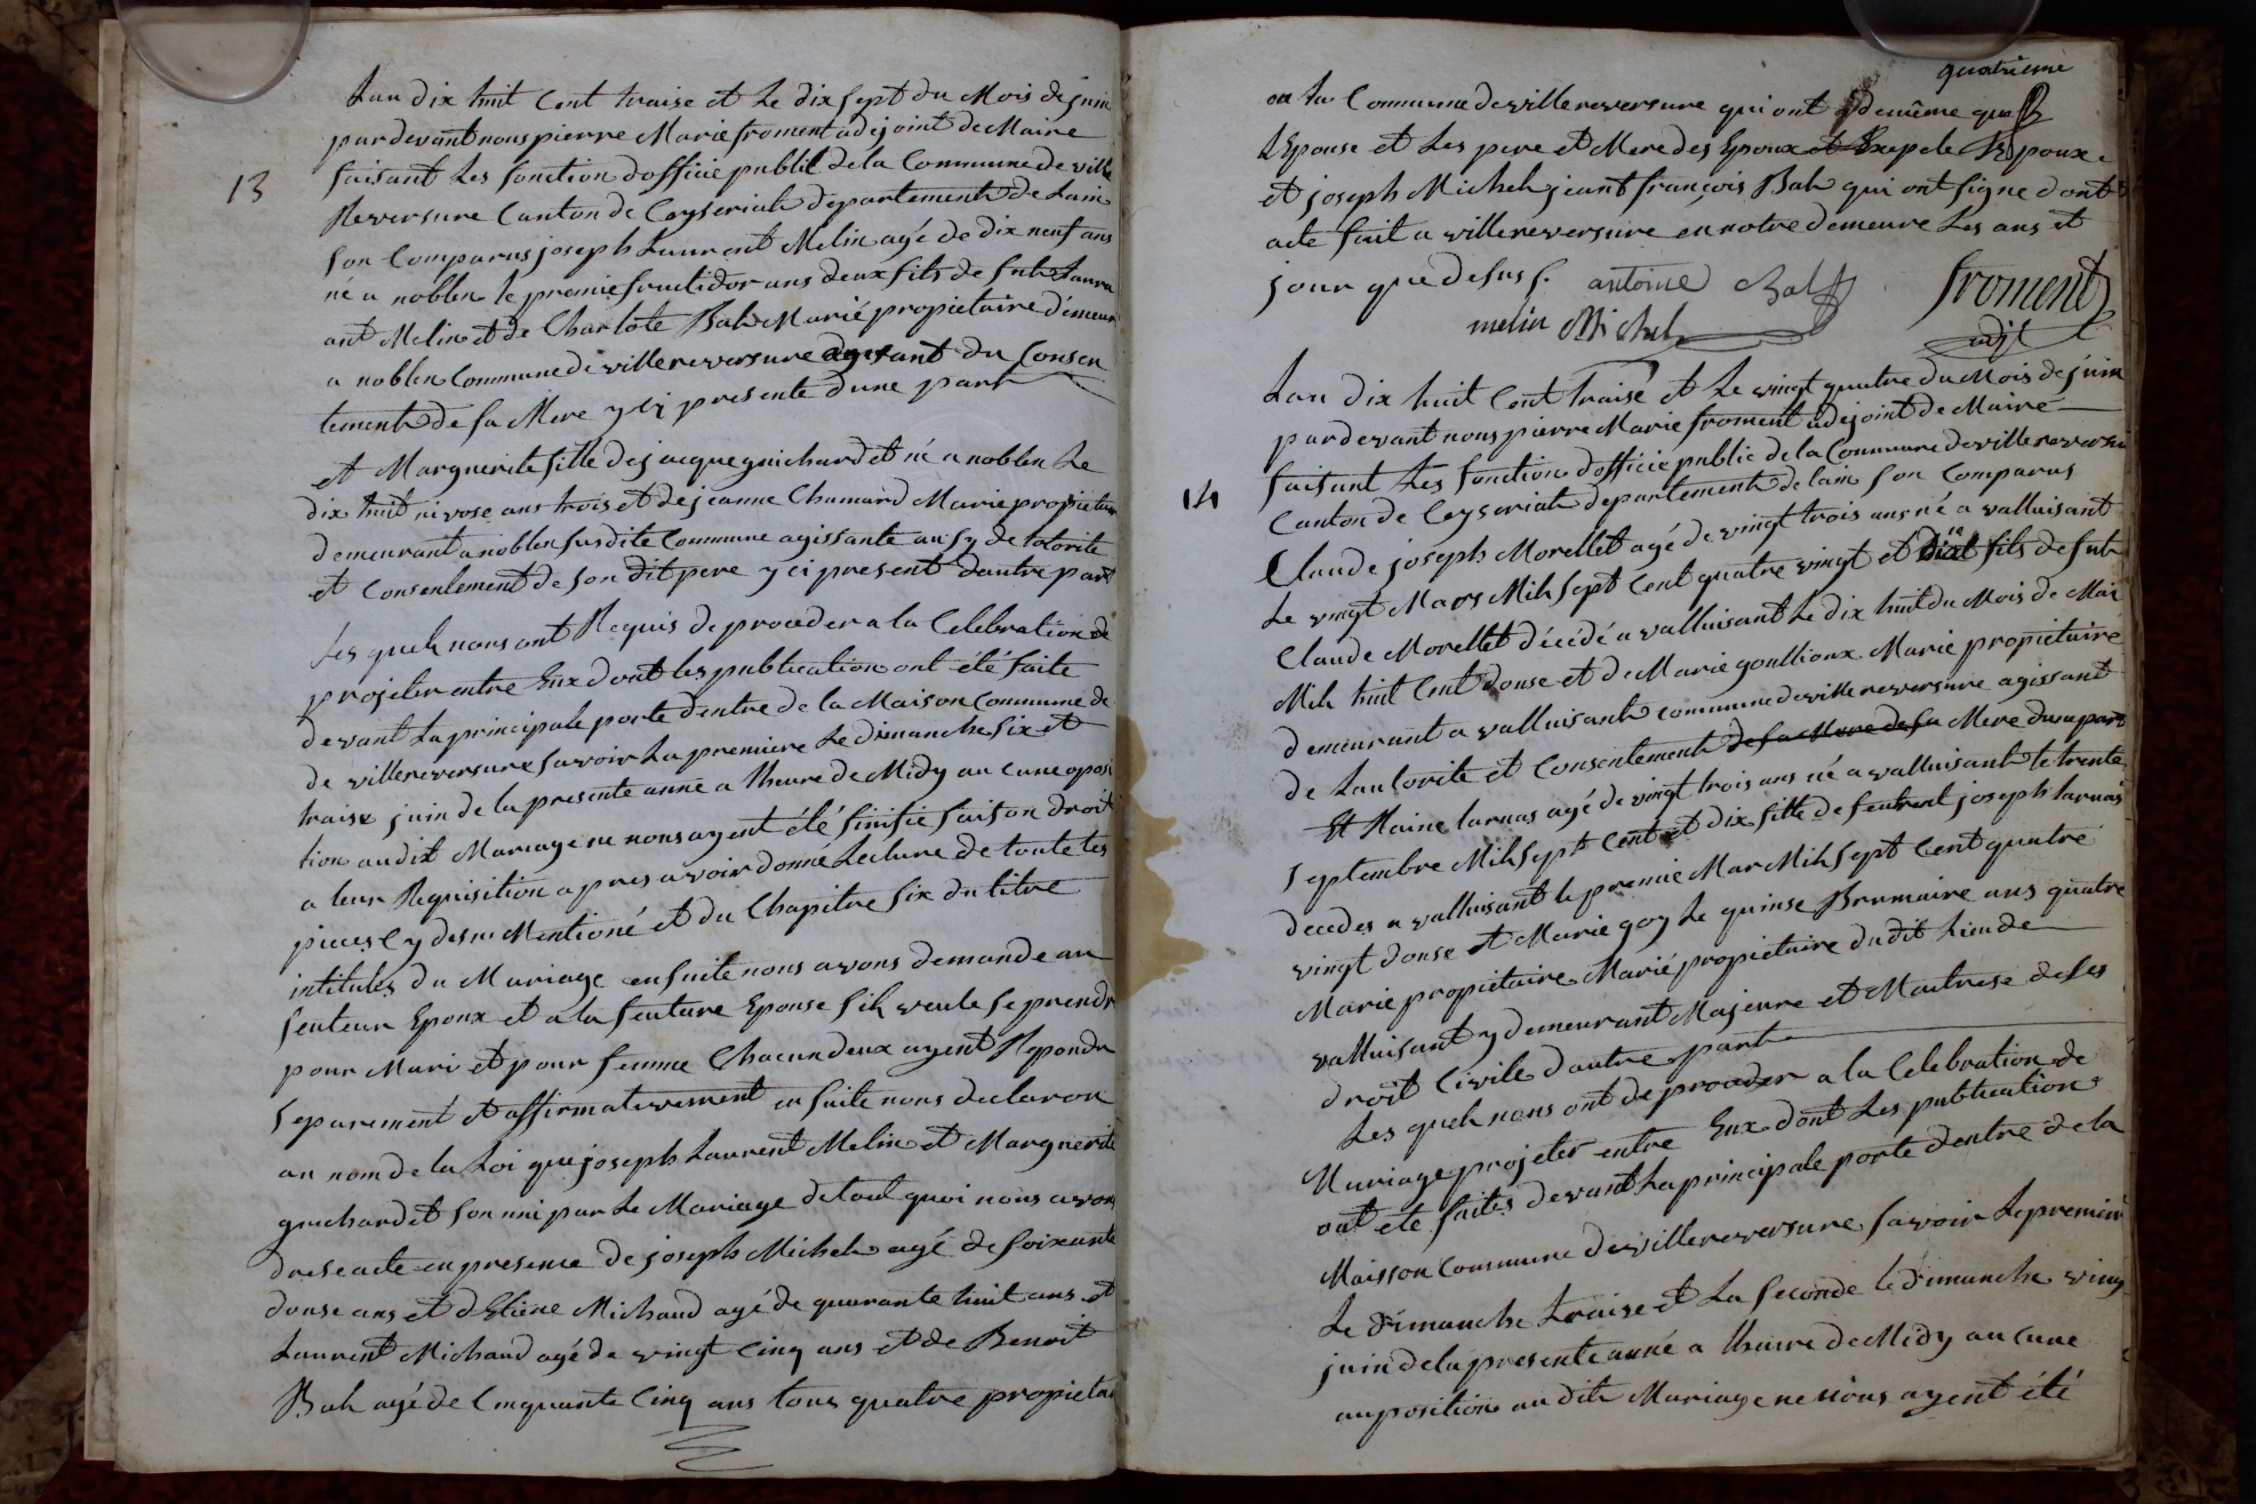 Lan dix huit Cent traise et Le dix sept du Mois de juin
pardevant nous pierre Marie froment adejoint de Maire
faisant Les fonction dofficie public de la Commune de ville
13
Reversure Canton de Ceyseriah departement de Lain
son Comparus joseph Laurent Melin agé de dix neuf ans
né a noblen le premie fructidor ans deux fils de fuh Laura
ant Melin et de Charlote Bah Marié propietaire démeur
a noblen Commune de villereversure agissant du Consen
tement de sa Mere y ci presente dune part
et Marguerite fille de jacque guichardet né a noblen Le
dix huit nivose ans trois et de jeanne Chanard Marie propietair
demeurant a noblen susdite Commune agissante ansy de lotorite
et Consentement de son dit pere y ci present dautre part
Les queh nous ont Requis de proceder a la Celebration de
projeter entre Eux dont les publication ont été faite
devant La principale porte dentre de la Maison Commune de
de villereversure savoir La premiere Le dimanche six et
traise juin de la presente anne a lheure de Midy au cune oposi
tion au dit Mariage ne nous ayent été sinifie faison droit
a leur Requisition apres avoir donné Lecture de toute les
pieces Cy desu Mentioné et du Chapitre six du titre
intitules du Mariage ensuite nous avons demande au
feuteur Epoux et a la feuture Epouse sih veule se prendr
pour Mari et pour femme Chacun deux ayent Repondu
separement et affirmativement en suite nous declaron
au nom de la Loi que joseph Laurent Melin et Marguerite
guichardet son uni par Le Mariage de tout quoi nous avons
drese acte en presence de joseph Michel agé de soixante
douse ans et dEtiene Michaud agé de quarante huit ans et
Laurent Michaud agé de vingt Cinq ans et de Benoit
Bah agé de Cinquante Cinq ans tous quatre propietai
quatrieme
en la Commune de villereversure qui ont demême que
LEpouse et Les pere et Mere des Epoux et Exepele Epoux
et joseph Michel jeant françois Bah qui ont signe dont
acte fait a villereversure en notre demeure Les ans et
jour que desus. antoine Bal froment
melin Michel adjt
Lan dix huit Cent traise et Le vingt quatre du Mois de juin
pardevant nous pierre Marie froment adejoint de Maire
faisant Les fonction dofficie public de la Commune de villereversu
14
Canton de Ceyseriah departement de lain son Comparus
Claude joseph Morellet agé de vingt trois ans né a valluisant
Le vingt Mars Mih sept Cent quatre vingt et dix fils de fuh
Claude Morellet décédé a valluisant Le dix huit du Mois de Mai
Mih huit Cent douse et de Marie goullioux Marie propietaire
demeurant a valluisant commune de villereversure agissant
de Lautorite et Consentement de sa Mere de sa Mere dune part
Et Raine larnas agé de vingt trois ans né a valluisant le trente
septembre Mih sept Cent et dix fille de feu joseph larnas
decedes a valluisant le premie Mar Mih sept Cent quatre
vingt douse et Marie goy Le quinse Brumaire ans quatre
Marie propietaire Marié propietaire du dit Lieu de
valluisant y demeurant Majeure et Maitrese de ses
droit Civile dautre part
Les queh nous ont de proceder a la Celebration de
Mariage projeter entre Eux dont Les publication
ont ete faites devant La principale porte dentre de la
Maisson Commune de villereversure savoir Le premiere
Le dimanche traise et La seconde le dimanche ving
juin de la presente anné a lheure de Midy au cune
auposition au dit Mariage ne nous ayent été